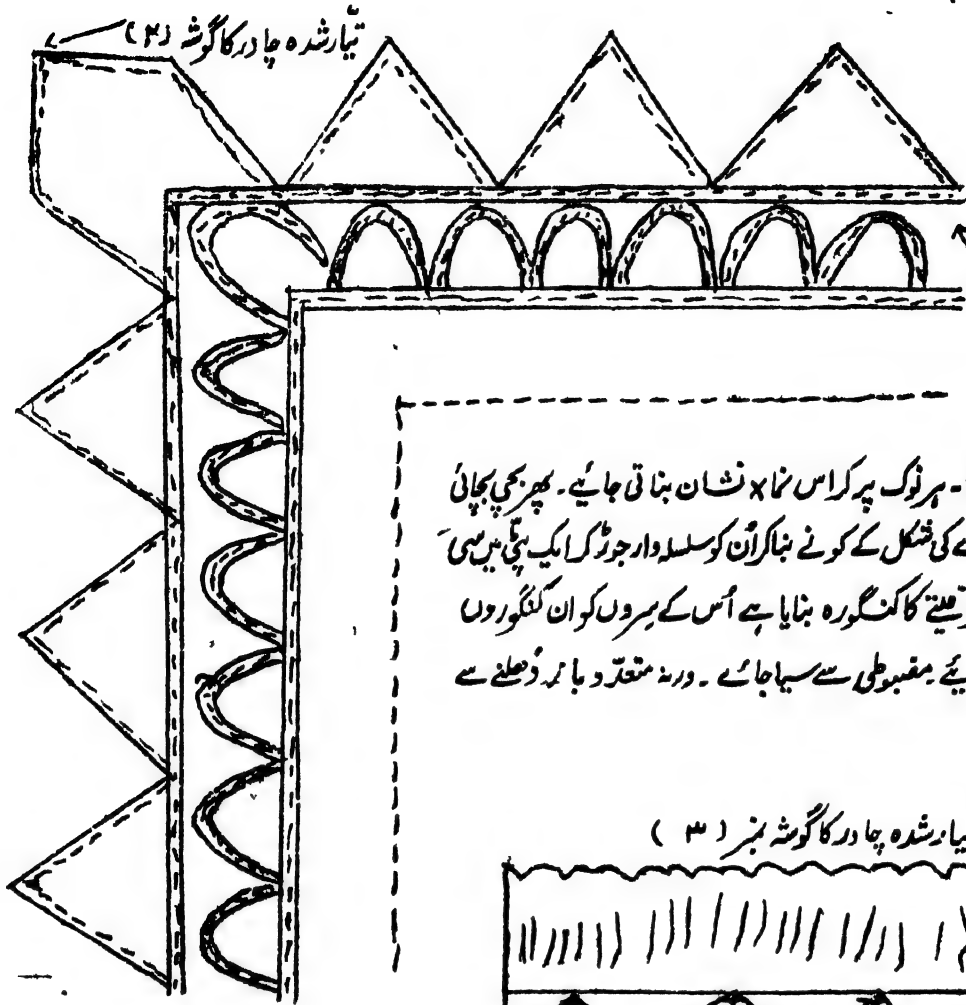 تیّار شدہ چادر کا گوشہ (۲)
۔ ہر نوک پر کراس نما x نشان بناتی جائیے۔ پھر بچی بچائی
ے کی شکل کے کونے بنا کر اُن کو سلسلہ وار جوڑ کر ایک پٹی میں سی
کا کنگورہ بنایا ہے اُس کے سِروں کو ان کنگوروں
ئیے۔ مضبوطی سے سیا جائے۔ ورنہ متعدّد بار دُھلنے سے
یار شدہ چادر کا گوشہ نمبر (۳)